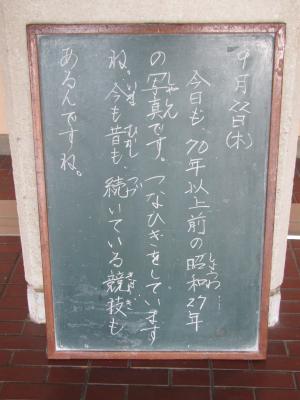 9月22日(木)
今日も、70年以上前の昭和27年
しょうわ
の写真です。つなひきをしています
しゃしん
ね。今も昔も、続いている競技も
いま むかし つづ きょうぎ
あるんですね。